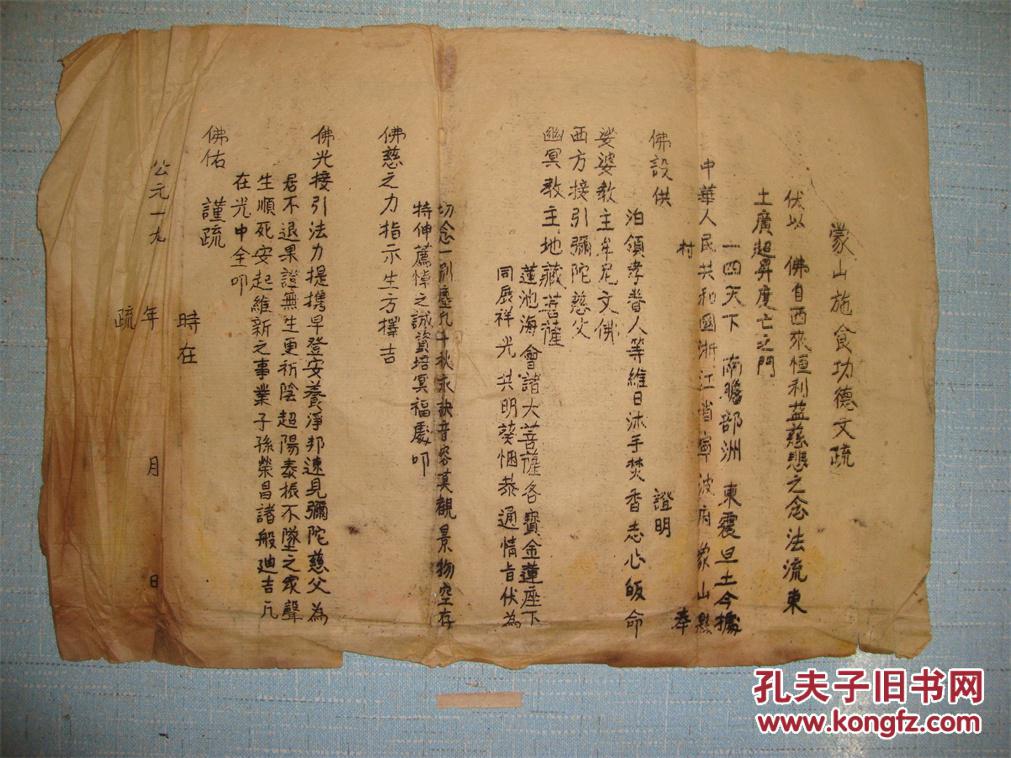 蒙山施食功德文疏
伏以 佛自西來恒利益慈悲之念法流東
土廣超昇度亡之門
一四天下 南瞻部洲 東震旦土今據
中華人民共和國浙江省寧波府象山縣
村 奉
佛設供 證明
洎領孝眷人等維日沐手焚香志心皈命
娑婆教主牟尼文佛
西方接引彌陀慈父
幽冥教主地藏菩薩
蓮池海會諸大菩薩各寶金蓮座下
同展祥光共明葵悃恭通情旨伏為
切念一別塵凡千秋永訣音容莫觀景物空存
特伸薦悼之誠資培冥福處叩
佛慈之力指示生方擇吉
佛光接引法力提携早登安養淨邦速見彌陀慈父為
居不退果證無生更祈陰超陽泰振不墜之家聲
生順死安起維新之事業子孫榮昌諸般迪吉凡
在光中全叩
佛佑 謹疏
時在
公元一九 年 月 日
疏
孔夫子旧书网
www.kongfz.com